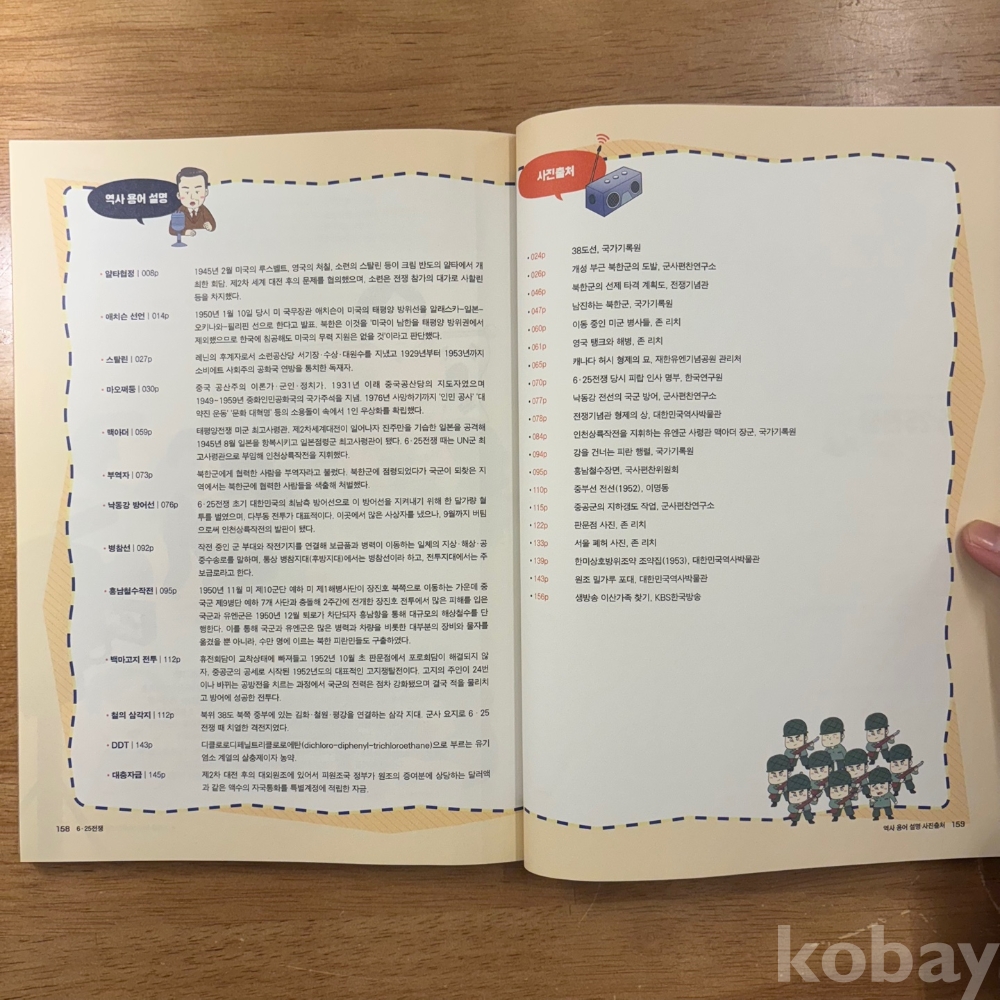 역사 용어 설명
• 얄타협정 | 008p 1945년 2월 미국의 루스벨트, 영국의 처칠, 소련의 스탈린 등이 크림 반도의 얄타에서 개
최한 회담. 제2차 세계 대전 후의 문제를 협의했으며, 소련은 전쟁 참가의 대가로 사할린
등을 차지했다.
• 애치슨 선언 | 014p 1950년 1월 10일 당시 미 국무장관 애치슨이 미국의 태평양 방위선을 알래스카–일본–
오키나와–필리핀 선으로 한다고 발표. 북한은 이것을 '미국이 남한을 태평양 방위권에서
제외했으므로 한국에 침공해도 미국의 무력 지원은 없을 것'이라고 판단했다.
• 스탈린 | 027p 레닌의 후계자로서 소련공산당 서기장·수상·대원수를 지냈고 1929년부터 1953년까지
소비에트 사회주의 공화국 연방을 통치한 독재자.
• 마오쩌둥 | 030p 중국 공산주의 이론가·군인·정치가. 1931년 이래 중국공산당의 지도자였으며
1949~1959년 중화인민공화국의 국가주석을 지냄. 1976년 사망하기까지 '인민 공사' '대
약진 운동' '문화 대혁명' 등의 소용돌이 속에서 1인 우상화를 확립했다.
• 맥아더 | 059p 태평양전쟁 미군 최고사령관, 제2차세계대전이 일어나자 진주만을 기습한 일본을 공격해
1945년 8월 일본을 항복시키고 일본점령군 최고사령관이 됐다. 6·25전쟁 때는 UN군 최
고사령관으로 부임해 인천상륙작전을 지휘했다.
• 부역자 | 073p 북한군에게 협력한 사람을 부역자라고 불렀다. 북한군에 점령되었다가 국군이 되찾은 지
역에서는 북한군에 협력한 사람들을 색출해 처벌했다.
• 낙동강 방어선 | 076p 6·25전쟁 초기 대한민국의 최남측 방어선으로 이 방어선을 지켜내기 위해 한 달가량 혈
투를 벌였으며, 다부동 전투가 대표적이다. 이곳에서 많은 사상자를 냈으나, 9월까지 버팀
으로써 인천상륙작전의 발판이 됐다.
• 병참선 | 092p 작전 중인 군 부대와 작전기지를 연결해 보급품과 병력이 이동하는 일체의 지상·해상·공
중수송로를 말하며, 통상 병참지대(후방지대)에서는 병참선이라 하고, 전투지대에서는 주
보급로라고 한다.
• 흥남철수작전 | 095p 1950년 11월 미 제10군단 예하 미 제1해병사단이 장진호 북쪽으로 이동하는 가운데 중
국군 제9병단 예하 7개 사단과 충돌해 2주간에 전개한 장진호 전투에서 많은 피해를 입은
국군과 유엔군은 1950년 12월 퇴로가 차단되자 흥남항을 통해 대규모의 해상철수를 단
행한다. 이를 통해 국군과 유엔군은 많은 병력과 차량을 비롯한 대부분의 장비와 물자를
옮겼을 뿐 아니라, 수만 명에 이르는 북한 피란민들도 구출하였다.
• 백마고지 전투 | 112p 휴전회담이 교착상태에 빠져들고 1952년 10월 초 판문점에서 포로회담이 해결되지 않
자, 중공군의 공세로 시작된 1952년도의 대표적인 고지쟁탈전이다. 고지의 주인이 24번
이나 바뀌는 공방전을 치르는 과정에서 국군의 전력은 점차 강화됐으며 결국 적을 물리치
고 방어에 성공한 전투다.
• 철의 삼각지 | 112p 북위 38도 북쪽 중부에 있는 김화·철원·평강을 연결하는 삼각 지대. 군사 요지로 6·25
전쟁 때 치열한 격전지였다.
• DDT | 143p 디클로로디페닐트리클로로에탄(dichloro-diphenyl-trichloroethane)으로 부르는 유기
염소 계열의 살충제이자 농약.
• 대충자금 | 145p 제2차 대전 후의 대외원조에 있어서 피원조국 정부가 원조의 증여분에 상당하는 달러액
과 같은 액수의 자국통화를 특별계정에 적립한 자금.
158 6·25전쟁
사진출처
• 024p 38도선, 국가기록원
• 026p 개성 부근 북한군의 도발, 군사편찬연구소
• 046p 북한군의 선제 타격 계획도, 전쟁기념관
• 047p 남진하는 북한군, 국가기록원
• 060p 이동 중인 미군 병사들, 존 리치
• 061p 영국 탱크와 해병, 존 리치
• 065p 캐나다 허시 형제의 묘, 재한유엔기념공원 관리처
• 070p 6·25전쟁 당시 피랍 인사 명부, 한국연구원
• 077p 낙동강 전선의 국군 방어, 군사편찬연구소
• 078p 전쟁기념관 형제의 상, 대한민국역사박물관
• 084p 인천상륙작전을 지휘하는 유엔군 사령관 맥아더 장군, 국가기록원
• 094p 강을 건너는 피란 행렬, 국가기록원
• 095p 흥남철수장면, 국사편찬위원회
• 110p 중부선 전선(1952), 이명동
• 115p 중공군의 지하갱도 작업, 군사편찬연구소
• 122p 판문점 사진, 존 리치
• 133p 서울 폐허 사진, 존 리치
• 139p 한미상호방위조약 조약집(1953), 대한민국역사박물관
• 143p 원조 밀가루 포대, 대한민국역사박물관
• 156p 생방송 이산가족 찾기, KBS한국방송
역사 용어 설명·사진출처 159
kobay